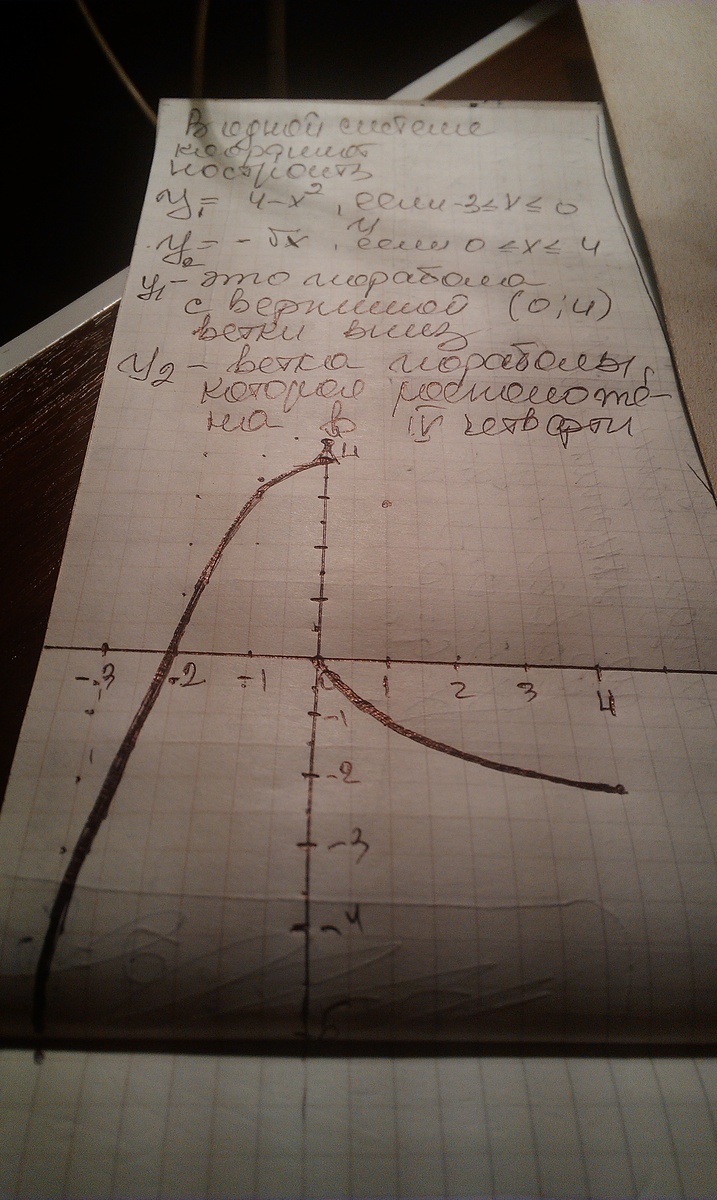 В одной системе
координат
построить
y₁ = 4-x², если -3≤x≤0
y₂ = -√x, если 0≤x≤4
y₁ - это парабола
с вершиной (0;4)
ветки вниз
y₂ - ветка параболы,
которая расположе-
на в IV четверти
y
4
-3 -2 -1 0 1 2 3 4
-1
-2
-3
-4